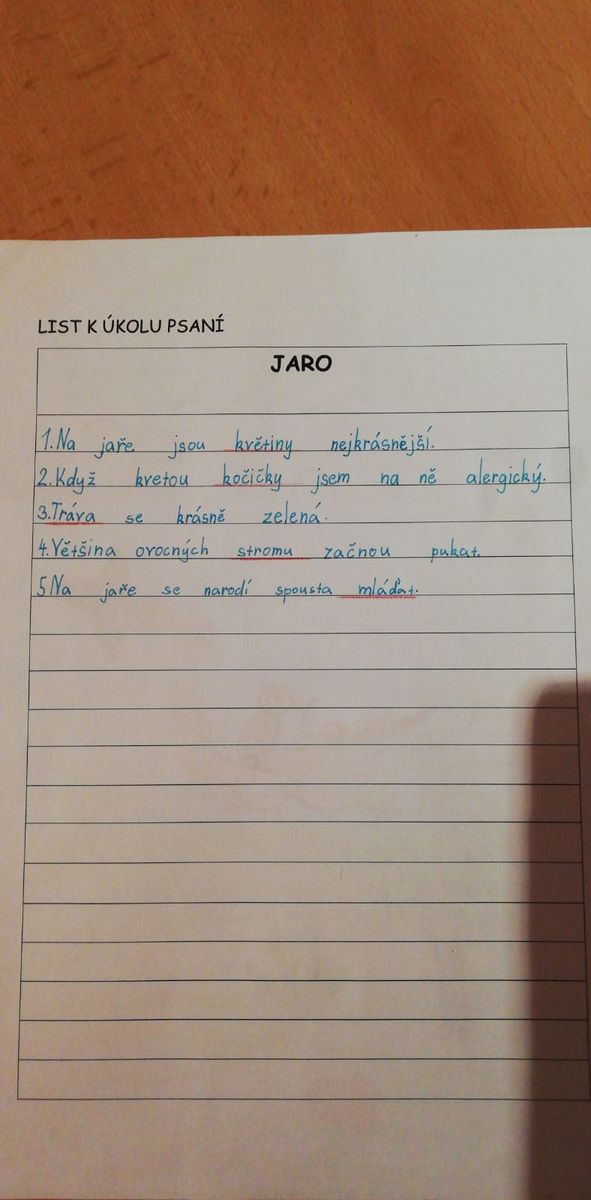 LIST K ÚKOLU PSANÍ
JARO
1.Na jaře jsou květiny nejkrásnější.
2.Když kvetou kočičky jsem na ně alergický.
3.Tráva se krásně zelená.
4.Většina ovocných stromu začnou pukat.
5Na jaře se narodí spousta mláďat.